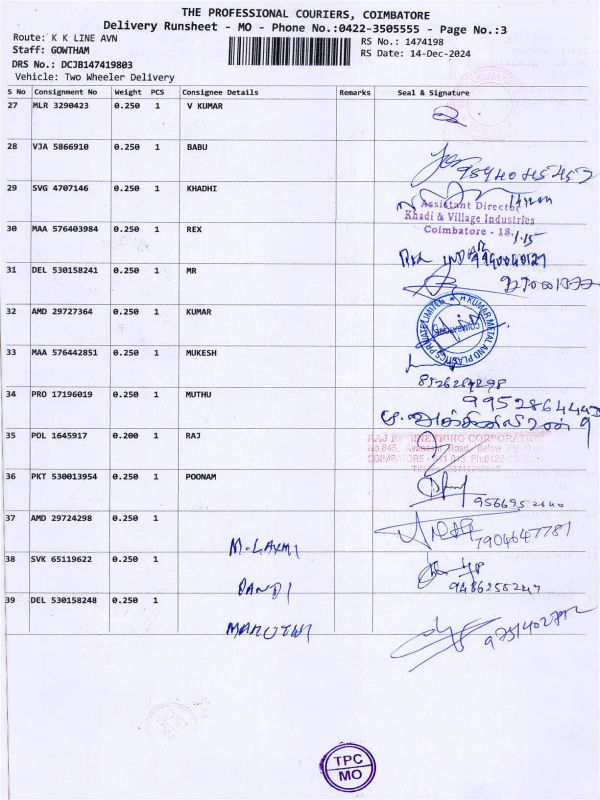 THE PROFESSIONAL COURIERS, COIMBATORE
Delivery Runsheet - MO - Phone No.:0422-3505555 - Page No.:3
Route: K K LINE AVN
RS No.: 1474198
Staff: GOWTHAM
RS Date: 14-Dec-2024
DRS No.: DCJB147419803
Vehicle: Two Wheeler Delivery
S No Consignment No Weight PCS Consignee Details Remarks Seal & Signature
27 MLR 3290423 0.250 1 V KUMAR
28 VJA 5866910 0.250 1 BABU
29 SVG 4707146 0.250 1 KHADHI
Assistant Director
Khadi & Village Industries
Coimbatore - 18.
30 MAA 576403984 0.250 1 REX
31 DEL 530158241 0.250 1 MR
32 AMD 29727364 0.250 1 KUMAR
KUMAR METAL AND PLASTICS PRIVATE LIMITED
COIMBATORE
33 MAA 576442851 0.250 1 MUKESH
8526269298
34 PRO 17196019 0.250 1 MUTHU
35 POL 1645917 0.200 1 RAJ
RAJ ENGINEERING CORPORATION
36 PKT 530013954 0.250 1 POONAM
37 AMD 29724298 0.250 1 M.LAXMI
7904647781
38 SVK 65119622 0.250 1 PANDI
9486255247
39 DEL 530158248 0.250 1 MARUTHI
TPC
MO